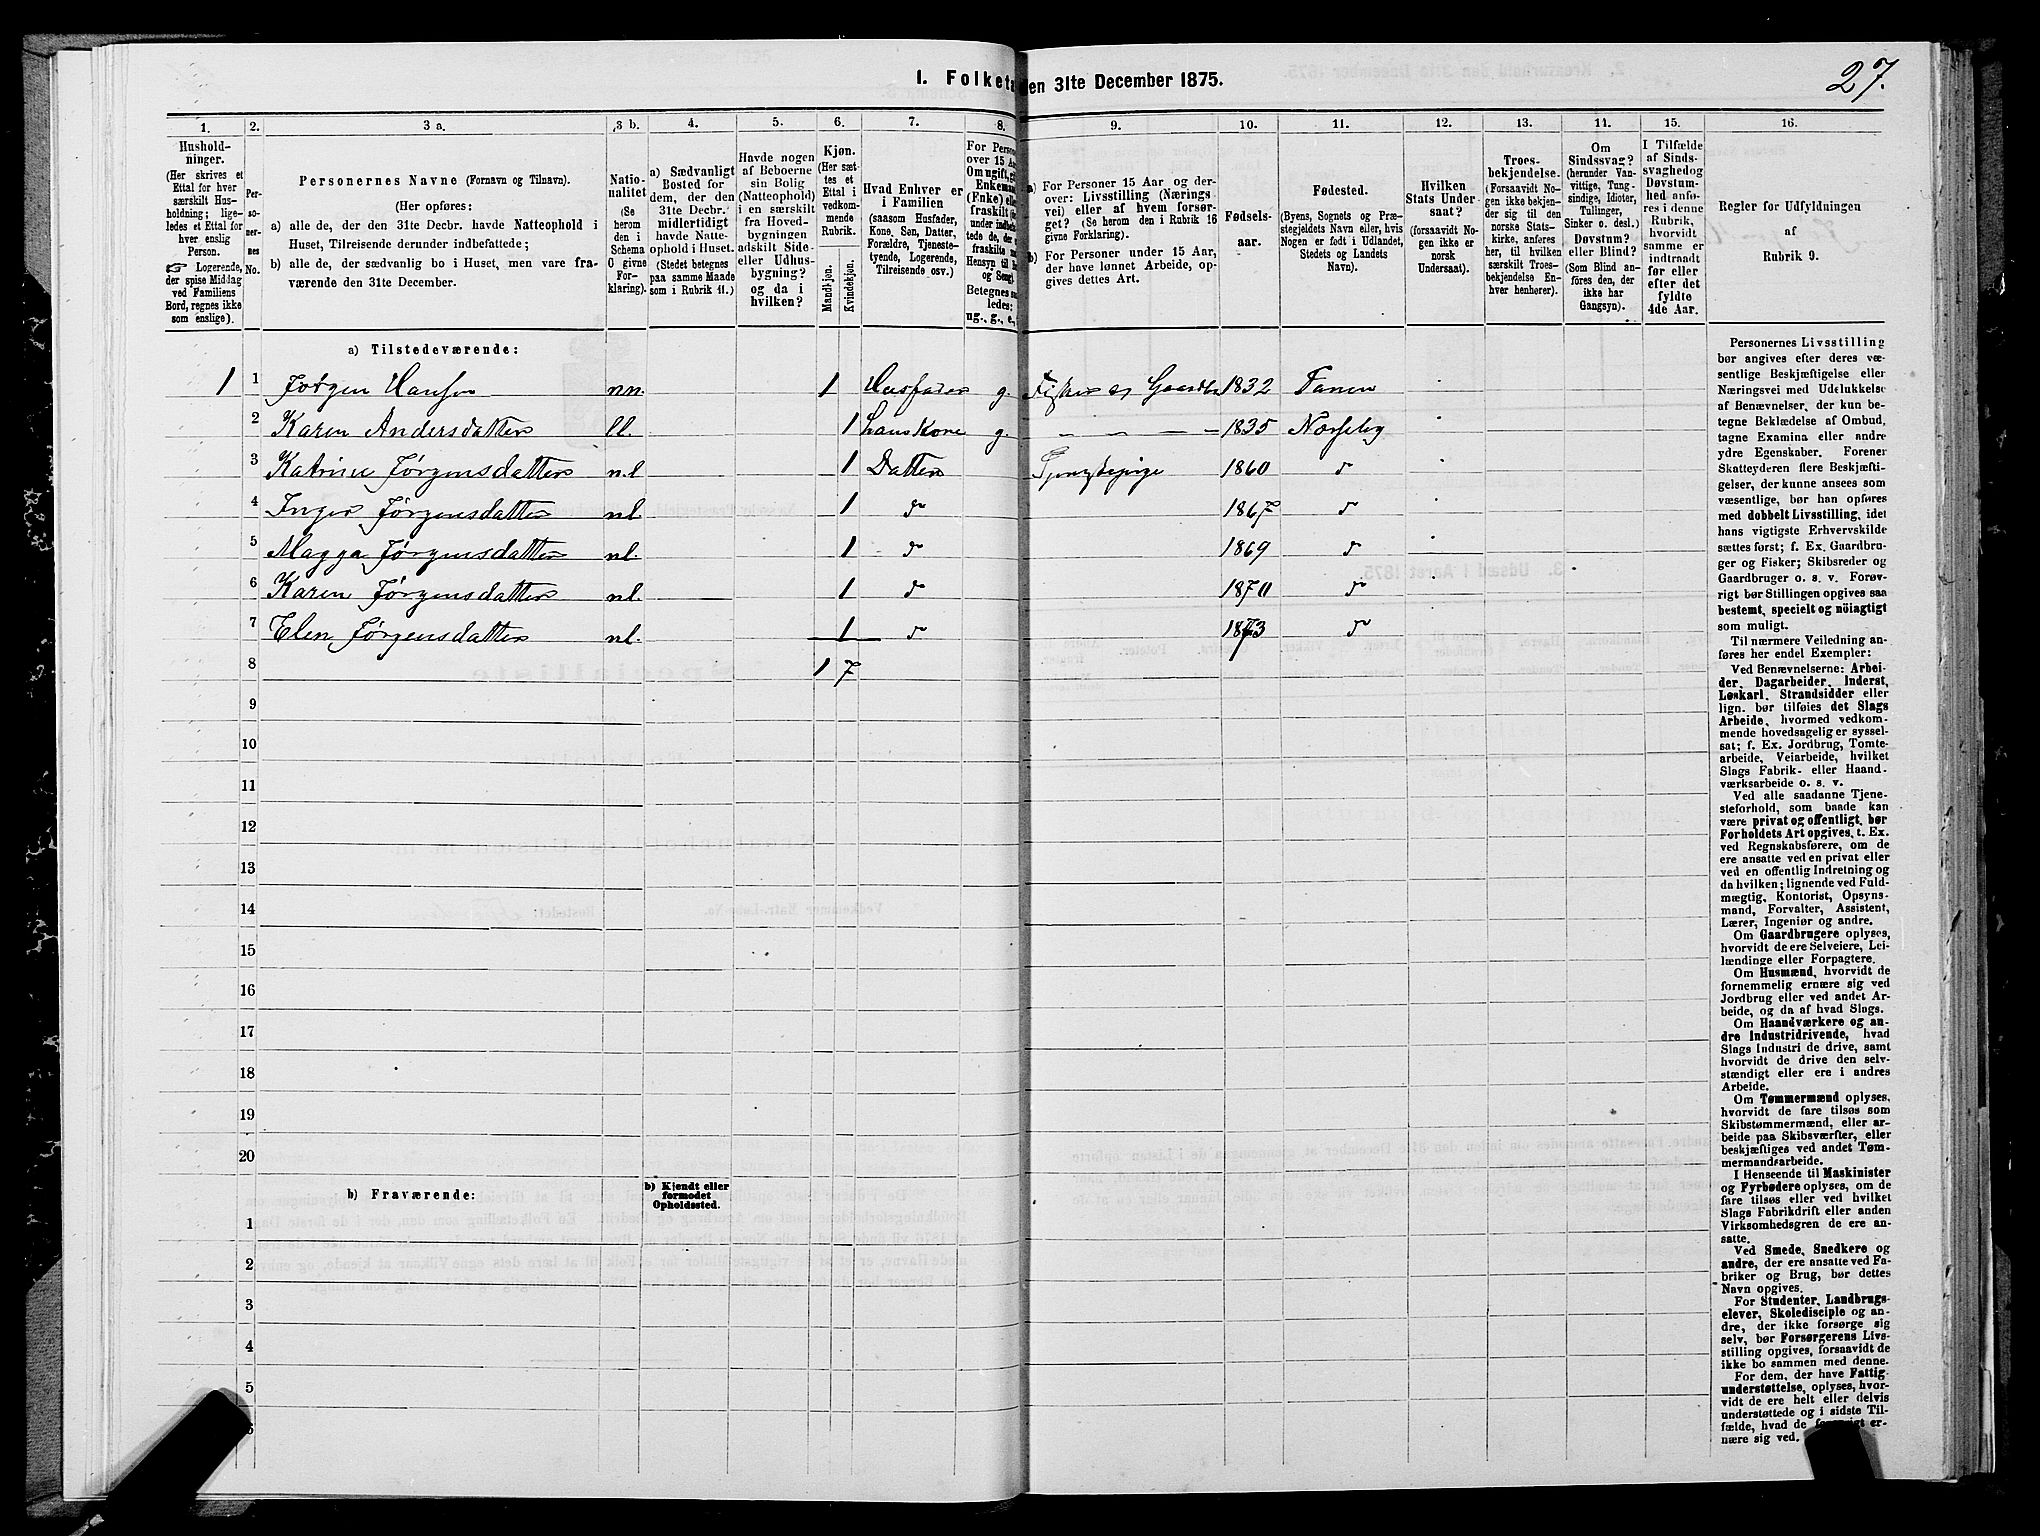 I. Folketa en 31te December 1875.
27.
1. 2. 3 a. 3 b. 4. 5. 6. 7. 8. 9. 10. 11. 12. 13. 14. 15. 16.
Hushold-
ninger.
(Her skrives et
Ettal for hver
særskilt Hus-
holdning; lige-
ledes et Ettal for
hver enslig
Person.
☞ Logerende,
der spise Middag
ved Familiens
Bord, regnes ikke
som enslige).
Per-
so-
ner-
nes
No.
Personernes Navne (Fornavn og Tilnavn).
(Her opføres:
a) alle de, der den 31te Decbr. havde Natteophold i
Huset, Tilreisende derunder indbefattede;
b) alle de, der sædvanlig bo i Huset, men vare fra-
værende den 31te December.
Natio-
nalitet
(Se
herom
den i
Schema
O givne
For-
klaring).
a) Sædvanligt
Bosted for
dem, der den
31te Decbr.
midlertidigt
havde Natte-
ophold i Huset.
(Stedet betegnes
paa samme Maade
som i Rubrik 11.)
Havde nogen
af Beboerne
sin Bolig
(Natteophold)
i en særskilt
fra Hoved-
bygningen
adskilt Side-
eller Udhus-
bygning?
og da i
hvilken?
Kjøn.
(Her sæt-
tes et
Ettal i
vedkom-
mende
Rubrik.
Mandkjøn.
Kvindekjøn.
Hvad Enhver er
i Familien
(saasom Husfader,
Kone, Søn, Datter,
Forældre, Tjeneste-
tyende, Logerende,
Tilreisende osv.)
For Person
over 15 Aar
Om ugift, gi
Enkemand
(Enke) elle
fraskilt
Betegnes
ledes:
ug., g., e.,
a) For Personer 15 Aar og der-
over: Livsstilling (Nærings-
vei) eller af hvem forsør-
get? (Se herom den i Rubrik 16
givne Forklaring).
b) For Personer under 15 Aar,
der have lønnet Arbeide, op-
gives dettes Art.
Fødsels-
aar.
Fødested.
(Byens, Sognets og Præ-
stegjeldets Navn eller, hvis
Nogen er født i Udlandet,
Stedets og Landets
Navn).
Hvilken
Stats Under-
saat?
(forsaavidt No-
gen ikke er
norsk
Undersaat).
Troes-
bekjendelse.
(Forsaavidt No-
gen ikke bekjen-
der sig til den
norske Stats-
kirke, anføres
her, til hvilken
særskilt Troes-
bekjendelse En-
hver henhører).
Om
Sindssvag?
(herunder Van-
vittige, Tung-
sindige, Idioter,
Tullinger,
Sinker o. desl.)
Døvstum?
eller Blind?
(Som Blind an-
føres den, der
ikke har
Gangsyn).
I Tilfælde
af Sinds-
svaghed og
Døvstum-
hed anfø-
res i denne
Rubrik,
hvorvidt
samme er
indtraadt
før eller
efter det
fyldte
4de Aar.
Regler for Udfyldningen
af
Rubrik 9.
a) Tilstedeværende:
1 1 Jørgen Hansen n.n. 1 Husfader g. Fisker og Gaardbr 1832 Tanen
2 Karen Andersdatter l.l. 1 Huuskone g. – – – – 1835 Næsseby
3 Katrine Jørgensdatter n.l. 1 Datter Tjenestepige 1860 d
4 Inger Jørgensdatter nl. 1 d 1867 d
5 Magga Jørgensdatter nl. 1 d 1869 d
6 Karen Jørgensdatter nl. 1 d 1870 d
7 Elen Jørgensdatter nl. 1 d 1873 d
8 1 7
9
10
11
12
13
14
15
16
17
18
19
20
b) Fraværende:
b) Kjendt eller
formodet
Opholdssted.
1
2
3
4
5
Personernes Livsstilling
bør angives efter deres væ-
sentlige Beskjæftigelse eller
Næringsvei med Udelukkelse
af Benævnelser, der kun be-
tegne Beklædelse af Ombud,
tagne Examina eller andre
ydre Egenskaber. Forener
Skatteyderen flere Beskjæfti-
gelser, der kunne ansees som
væsentlige, bør han opføres
med dobbelt Livsstilling, idet
hans vigtigste Erhvervskilde
sættes først; f. Ex. Gaardbru-
ger og Fisker; Skibsreder og
Gaardbruger o. s. v. Forøv-
rigt bør Stillingen opgives saa
bestemt, specielt og nöiagtigt
som muligt.
Til nærmere Veiledning an-
føres her endel Exempler:
Ved Benævnelserne: Arbei-
der, Dagarbeider, Inderst,
Løskarl, Strandsidder eller
lign. bør tilføies det Slags
Arbeide, hvormed vedkom-
mende hovedsagelig er syssel-
sat; f. Ex. Jordbrug, Tomte-
arbeide, Veiarbeide, hvilket
Slags Fabrik- eller Haand-
værksarbeide o. s. v.
Ved alle saadanne Tjene-
steforhold, som baade kan
være privat og offentligt, bør
Forholdets Art opgives, t. Ex.
ved Regnskabsførere, om de
ere ansatte ved en privat eller
ved en offentlig Indretning og
da hvilken; lignende ved Fuld-
mægtig, Kontorist, Opsyns-
mand, Forvalter, Assistent,
Lærer, Ingeniør og andre.
Om Gaardbrugere oplyses,
hvorvidt de ere Selveiere, Lei-
lændinge eller Forpagtere.
Om Husmænd, hvorvidt de
fornemmelig ernære sig ved
Jordbrug eller ved andet Ar-
beide, og da af hvad Slags.
Om Haandværkere og an-
dre Industridrivende, hvad
Slags Industri de drive, samt
hvorvidt de drive den selv-
stændigt eller ere i andres
Arbeide.
Om Tømmermænd oplyses,
hvorvidt de fare tilsøs som
Skibstømmermænd, eller ar-
beide paa Skibsværfter, eller
beskjæftiges ved andet Tøm-
mermandsarbeide.
I Henseende til Maskinister
og Fyrbødere oplyses, om de
fare tilsøs eller ved hvilket
Slags Fabrikdrift eller anden
Virksomhedsgren de ere an-
satte.
Ved Smede, Snedkere og
andre, der ere ansatte ved Fa-
briker og Brug, bør dettes
Navn opgives.
For Studenter, Landbrugs-
elever, Skoledisciple og an-
dre, der ikke forsørge sig
selv, bør Forsørgerens Livs-
stilling opgives, forsaavidt de
ikke bo sammen med denne.
For dem, der have Fattig-
understøttelse, oplyses, hvor-
vidt de ere helt eller delvis
understøttede og i sidste Til-
fælde, hvad de forøvrigt er-
nære sig ved.